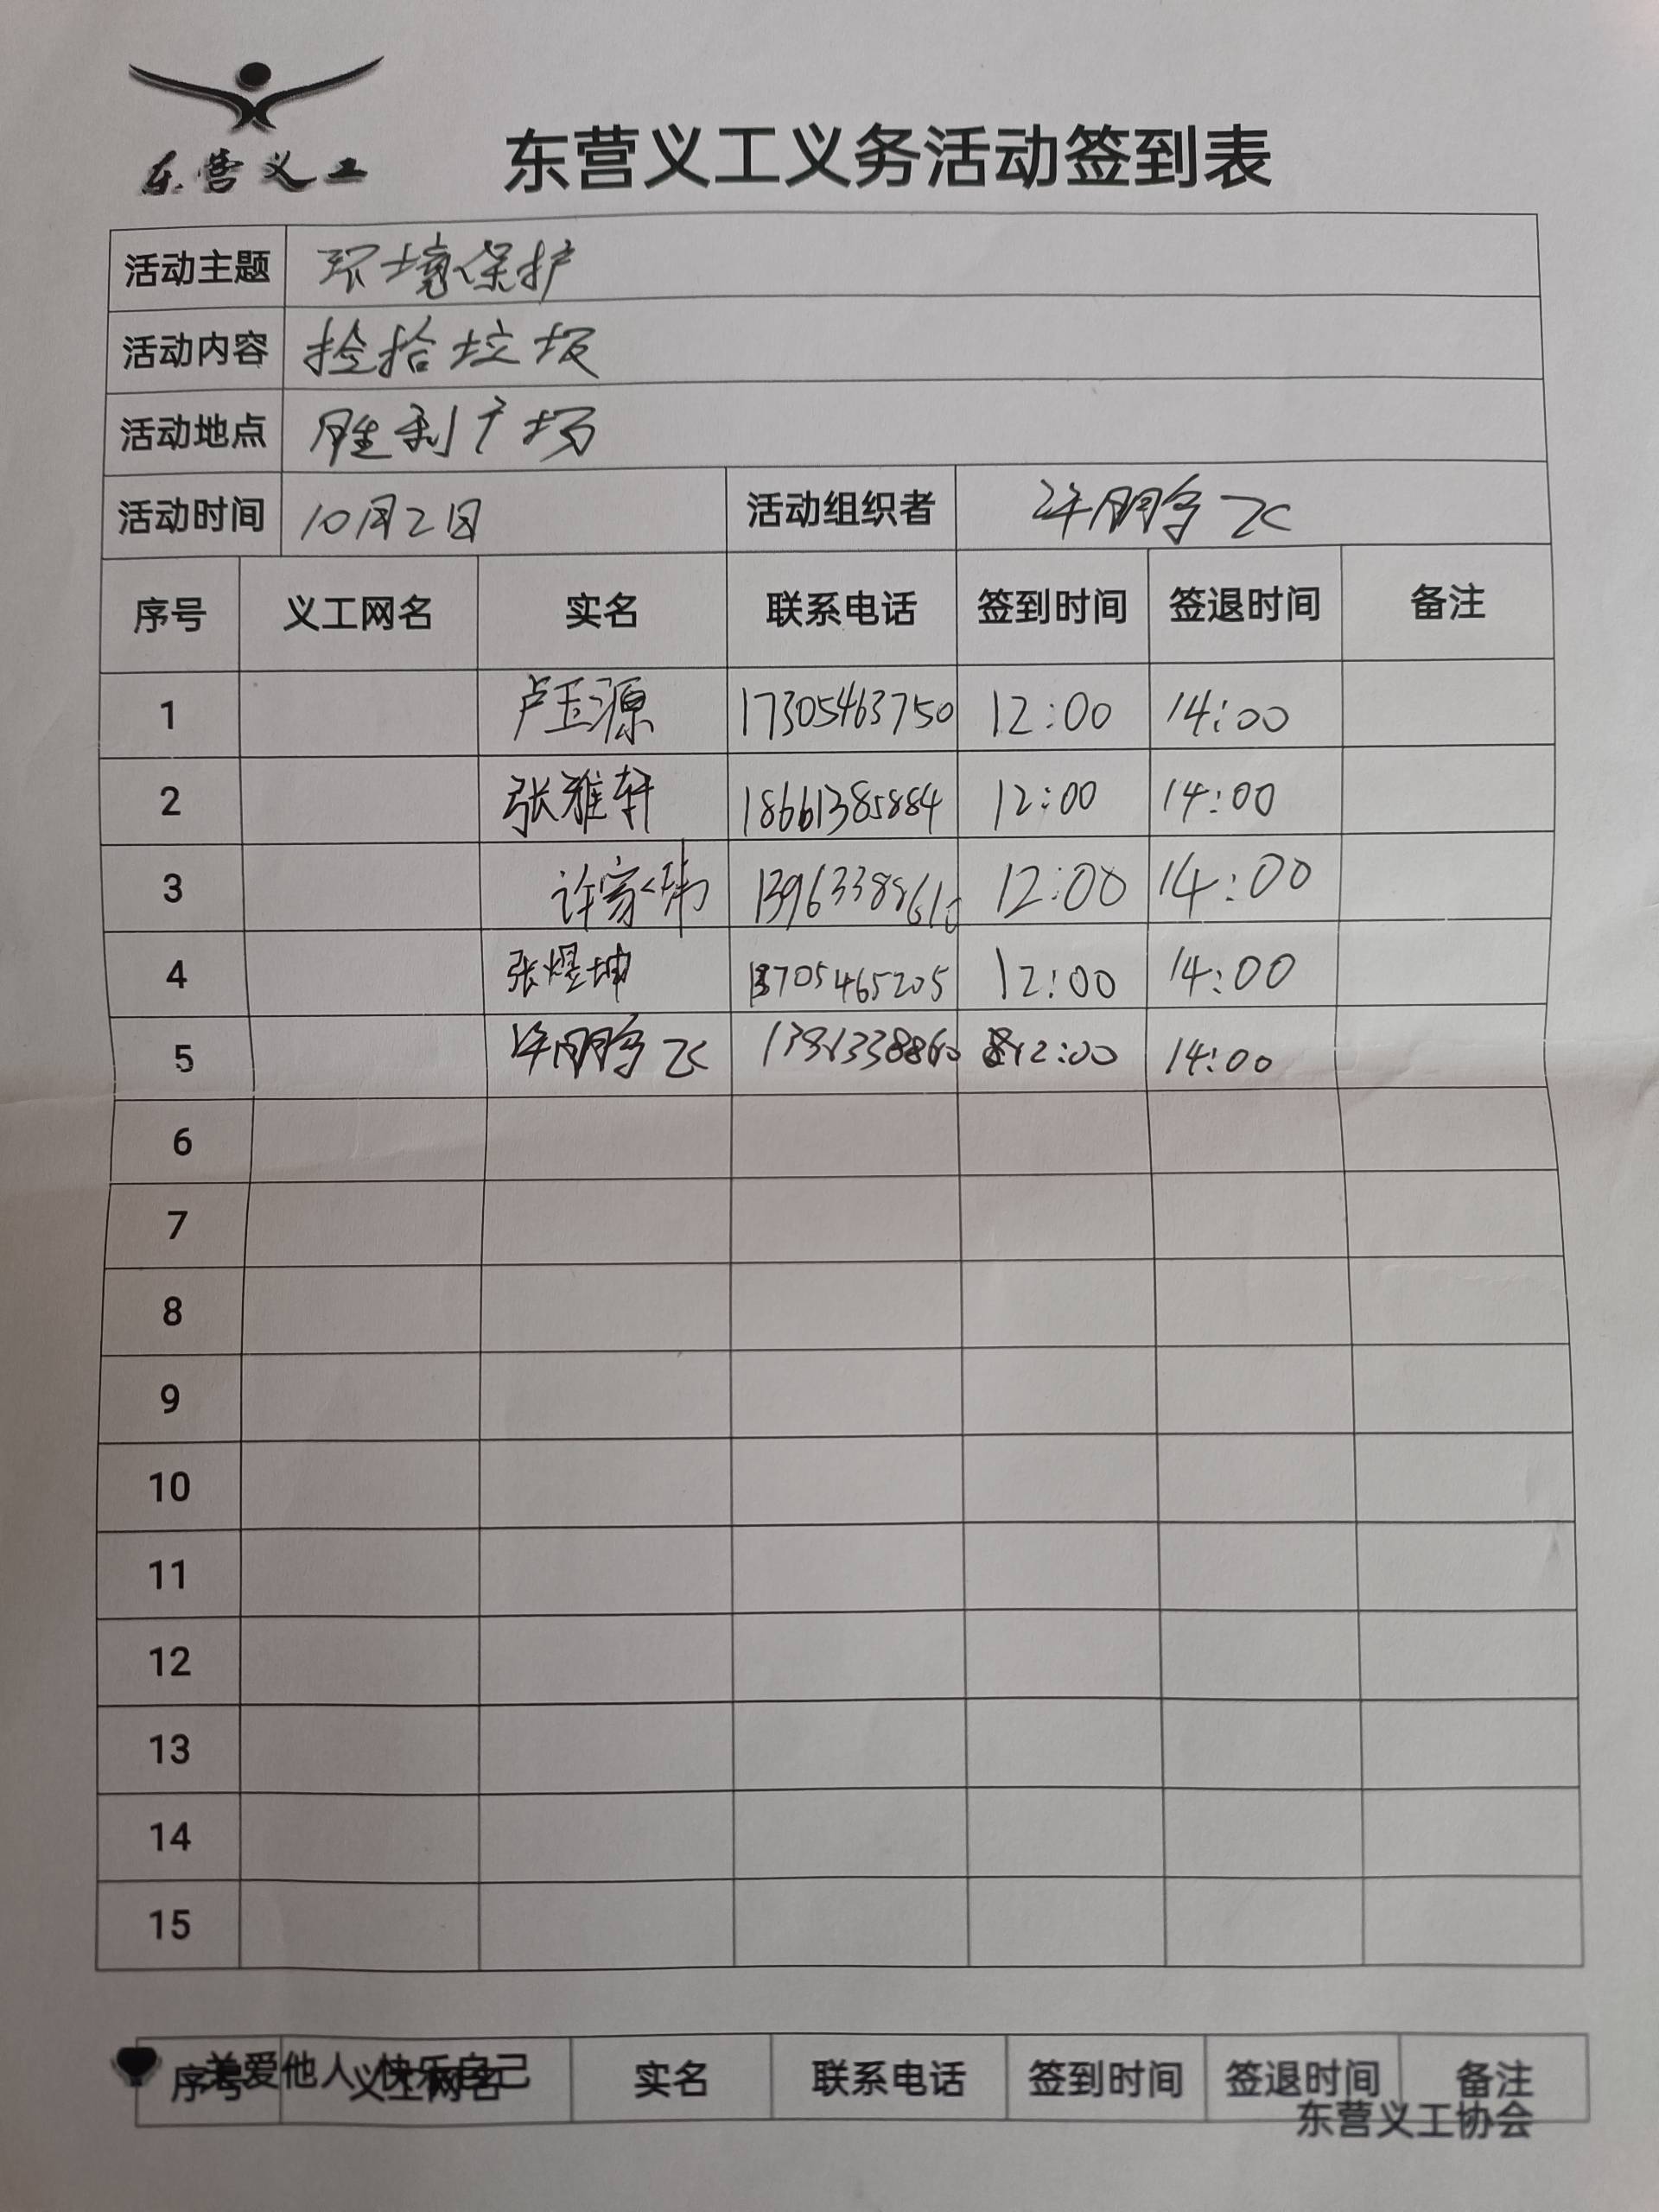 东营义工
东营义工义务活动签到表
活动主题 环境保护
活动内容 捡拾垃圾
活动地点 胜利广场
活动时间 10月2日 活动组织者 许朋宇飞
序号 义工网名 实名 联系电话 签到时间 签退时间 备注
1 卢玉源 17305463750 12:00 14:00
2 张雅轩 18661385884 12:00 14:00
3 许家玮 13963388610 12:00 14:00
4 张煜坤 13705465205 12:00 14:00
5 许朋宇飞 12:00 14:00
6
7
8
9
10
11
12
13
14
15
关爱他人 快乐自己
序号 义工网名 实名 联系电话 签到时间 签退时间 备注
东营义工协会